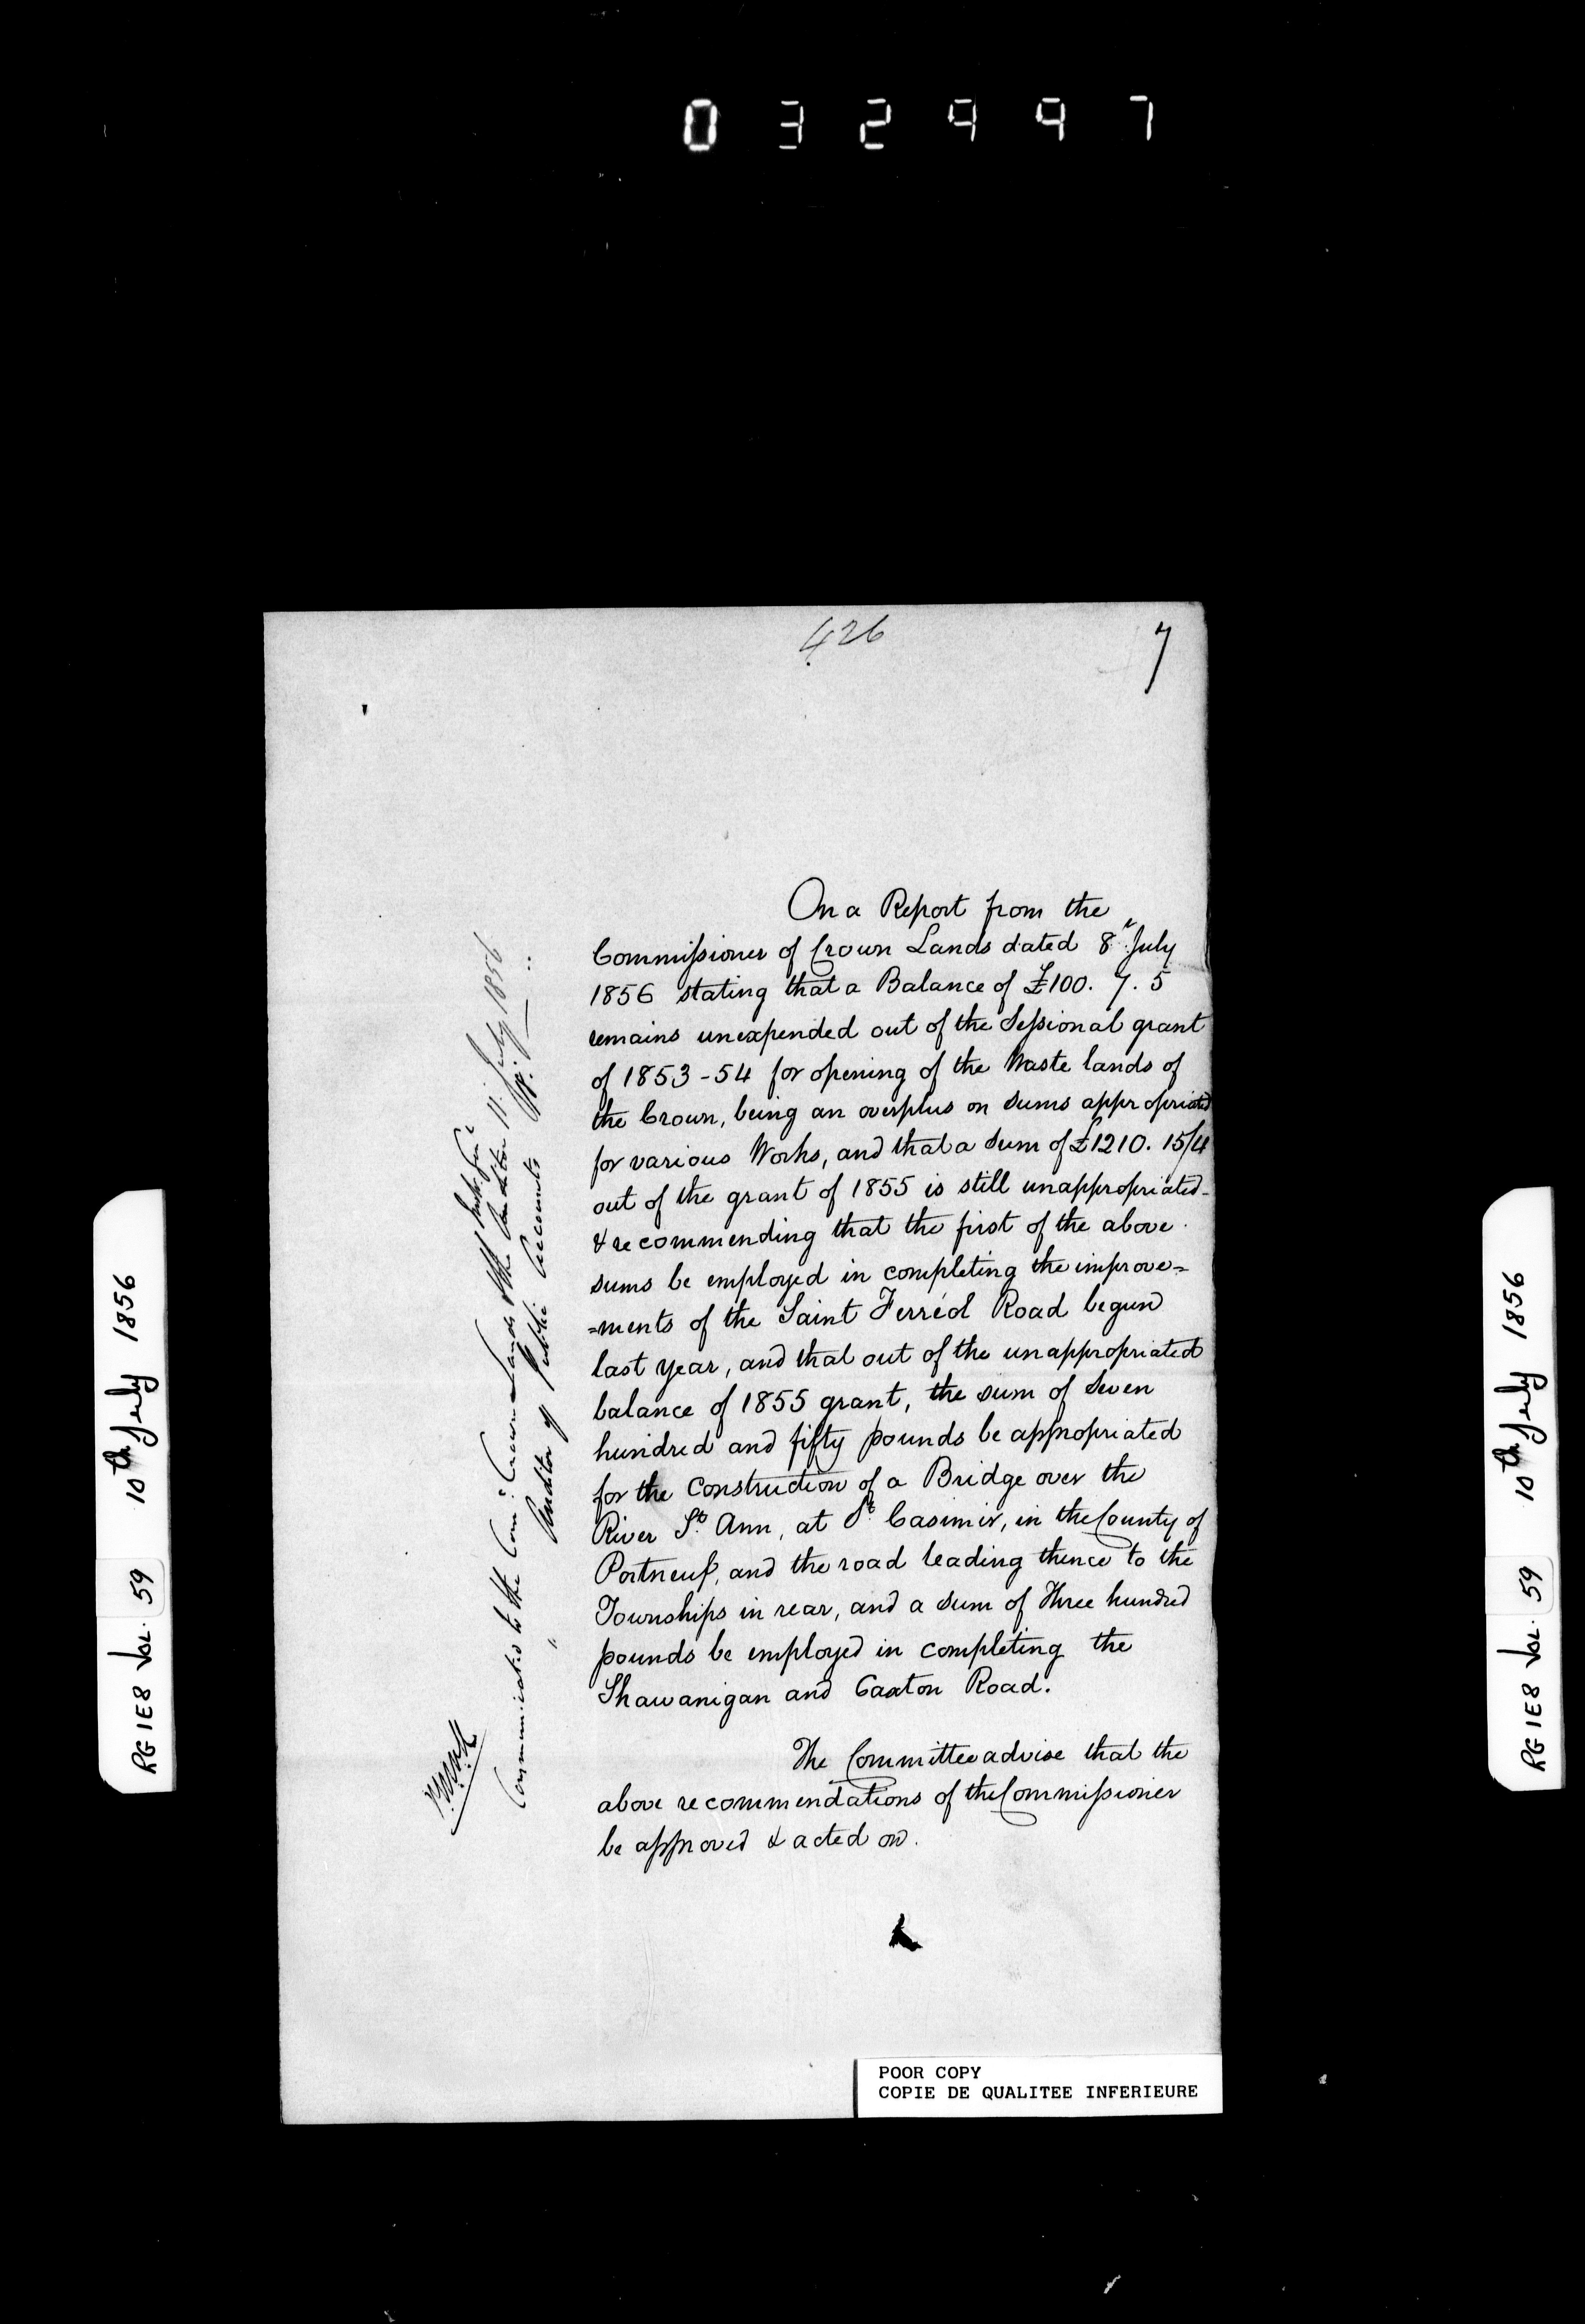 032997
426
7
On a Report from the
Commissioner of Crown Lands dated 8" July
1856 stating that a Balance of £100. 7. 5
remains unexpended out of the Sessional grant
of 1853-54 for opening of the Waste lands of
the Crown, being an overplus on sums appropriated
for various Works, and that a sum of £1210. 15/4
out of the grant of 1855 is still unappropriated-
& recommending that the first of the above
sums be employed in completing the improve=
=ments of the Saint Ferréol Road begun
last year, and that out of the unappropriated
balance of 1855 grant, the sum of Seven
hundred and fifty pounds be appropriated
for the Construction of a Bridge over the
River St. Ann, at St. Casimir, in the County of
Portneuf, and the road leading thence to the
Townships in rear, and a sum of Three hundred
pounds be employed in completing the
Shawanigan and Caxton Road.
The Committee advise that the
above recommendations of the Commissioner
be approved & acted on.
Communicated to the Comr. Crown Lands & the Auditor 11. July 1856
" Auditor of Public Accounts
POOR COPY
COPIE DE QUALITEE INFERIEURE
RG 1E8 Vol. 59 10th July 1856
RG 1E8 Vol. 59 10th July 1856